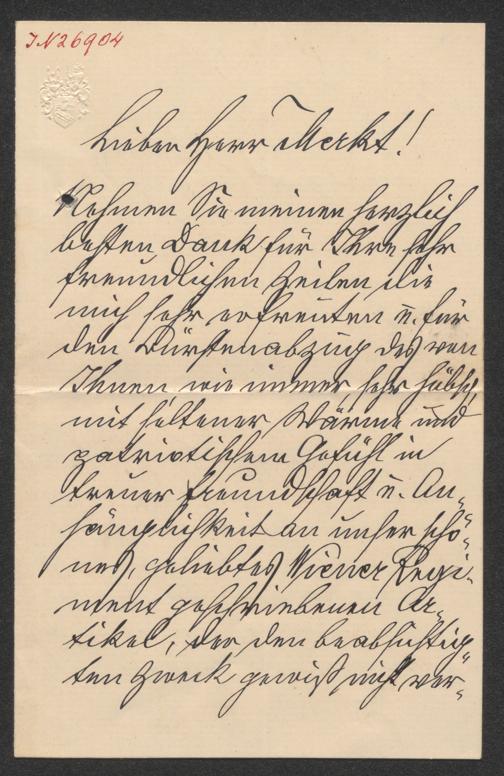 IN 26904
Lieber Herr Merkt!
Nehmen Sie meinen herzlich
besten Dank für Ihre sehr
freundlichen Zeilen die
mich sehr erfreuten u. für
den Bürstenabzug des von
Ihnen wie immer, sehr hübsch
mit seltener Wärme und
patriotischem Gefühl in
treuer Freundschaft u. An-
hänglichkeit an unser schö-
nes, geliebtes Wiener Regi-
ment geschriebenen Ar-
tikel, der den beabsichtig-
ten Zweck gewiß nicht ver-